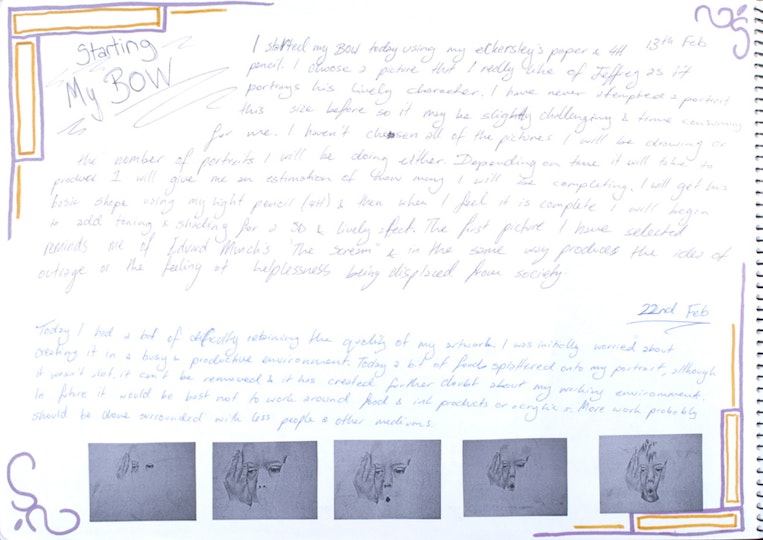 Starting
My BOW
13th Feb
I started my BOW today using my eckersley's paper & 4H
pencil. I choose a picture that I really like of Jeffrey as it
portrays his lively character. I have never attempted a portrait
this size before so it may be slightly challenging & time consuming
for me. I haven't choosen all of the pictures I will be drawing or
the number of portraits I will be doing either. Depending on time it will take to
produce 1 will give me an estimation of how many I will be completing. I will get his
basic shape using my light pencil (4H) & then when I feel it is complete I will begin
to add toning & shading for a 3D & lively effect. The first picture I have selected
reminds me of Edvard Munch's "The Scream" & in the same way produces the idea of
outrage or the feeling of helplessness being displaced from society.
22nd Feb
Today I had a bit of difficulty retaining the quality of my artwork. I was initially worried about
creating it in a busy & productive environment. Today a bit of splattered onto my portrait, although
it wasn't it can't be removed & it has created further doubt about my working environment.
In future it would be best not to work around food & ink products or acrylic. More work probably
should be done surrounded with less people & other mediums.